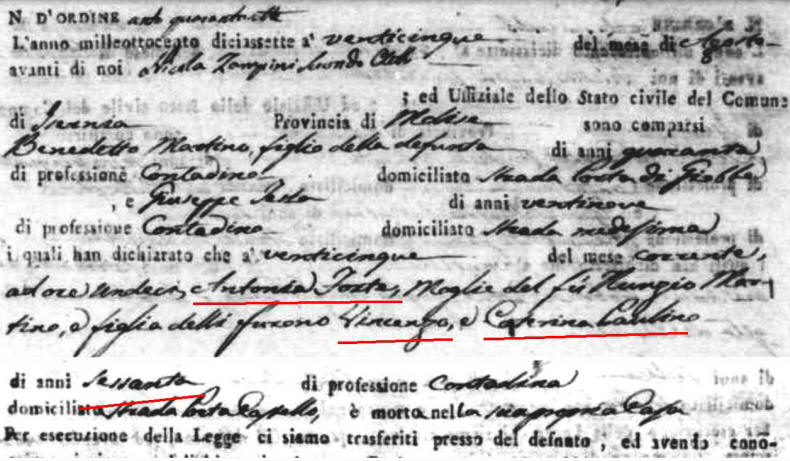 N. D'ORDINE cento quarantotto
L'anno milleottocento diciassette a' venticinque del mese di Agosto
avanti di noi Nicola Zampini Secondo Eletto
; ed Uffiziale dello Stato civile del Comune
di Isernia Provincia di Molise sono comparsi
Benedetto Martino, figlio della defunta di anni quaranta
di professione Contadino domiciliato strada
, e Giuseppe Testa di anni ventinove
di professione Contadino domiciliato strada medesima
i quali han dichiarato che a' venticinque del mese corrente,
ad ore undeci, Antonia Forte, Moglie del fù Nunzio Mar-
tino, e figlia delli furono Vincenzo, e Caterina Paulino
di anni sessanta di professione Contadina
domiciliata strada Porta Castello, è morta nella sua propria Casa
Per esecuzione della Legge ci siamo trasferiti presso del defunto ; ed avendo cono-